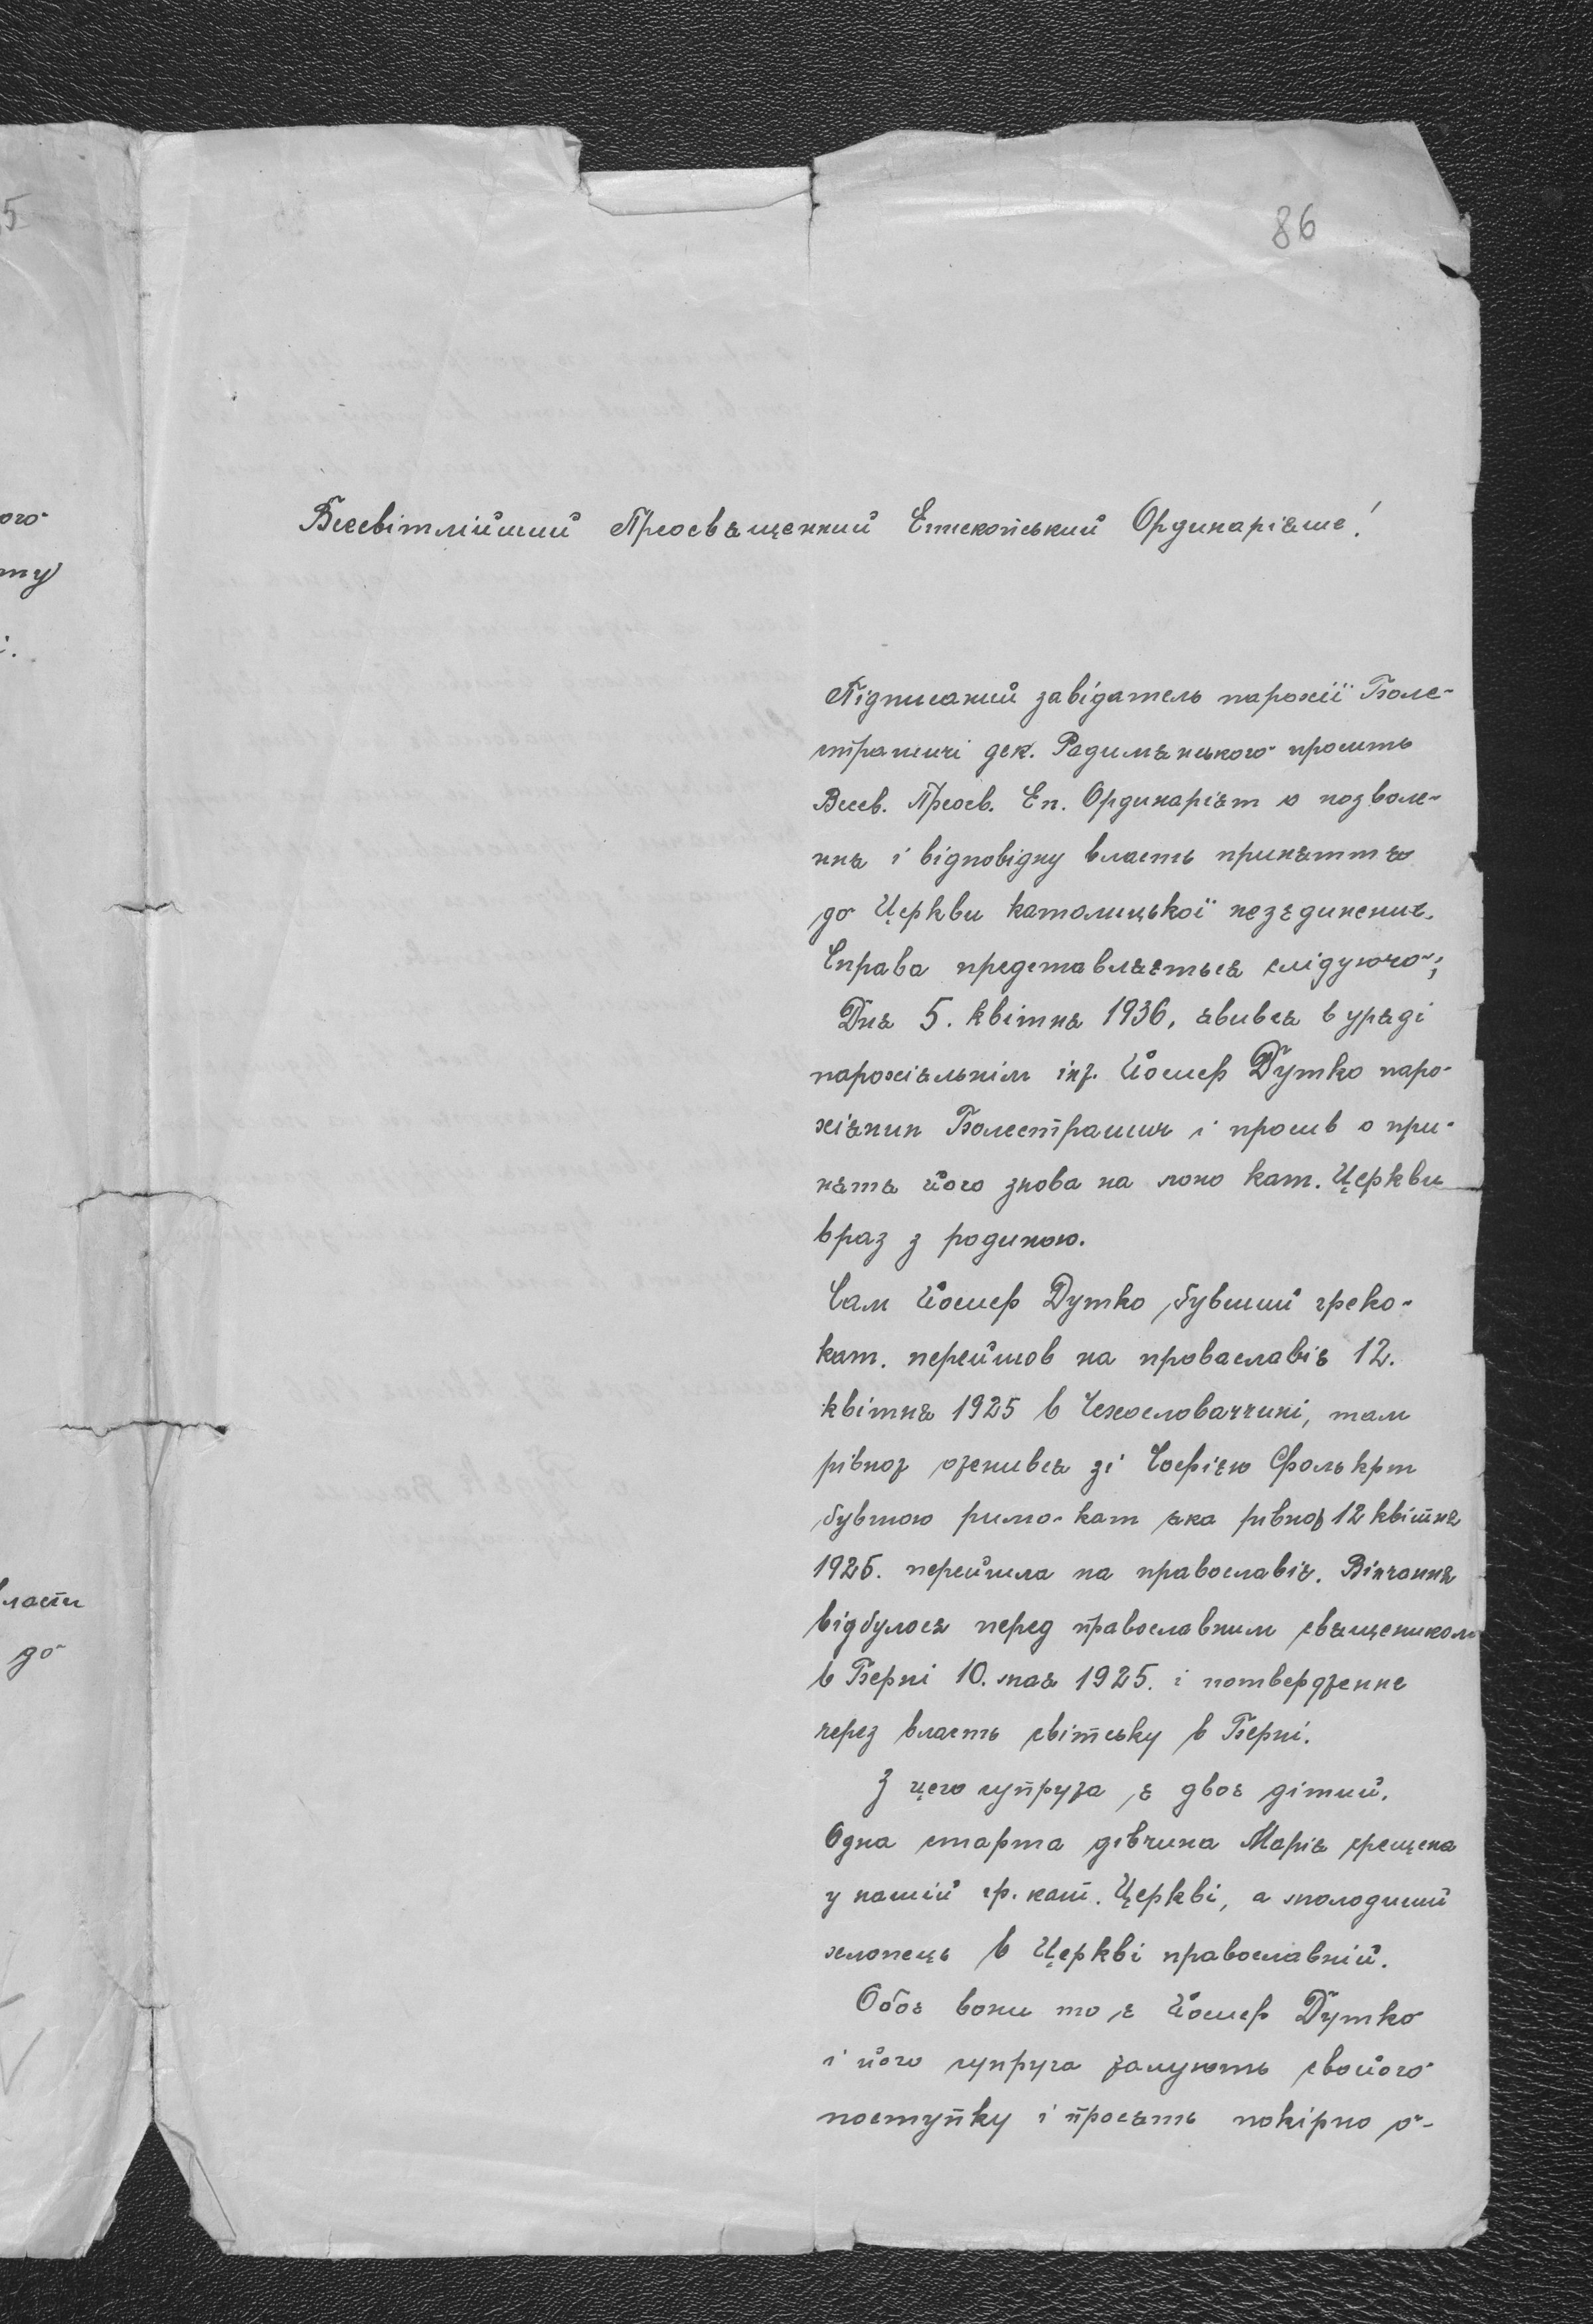 5
86
ого
ту
і.
власти
до
Всесвітлійший Преосвященний Епископський Ордикаріяте!
Підписаний завідатель парохії Боле-
страшичі дек. Радимянського просить
Всесв. Преосв. Еп. Ординаріят о позволе-
ння і відповідну власть приняття
до Церкви католицької незєдинених.
Справа представляється слідуючо;
Дня 5. квітня 1936, явився в уряді
парохіяльнім інж. Йосиф Дутко паро-
хіянин Болестрашич і просив о при-
нятя його знова на лоно кат. Церкви
враз з родиною.
Сам Йосиф Дутко, бувший греко-
кат. перейшов на проваславіє 12.
квітня 1925 в Чехословаччині, там
рівнож оженився зі Софією Фолькрт
бувшою римо-кат яка рівнож 12 квітня
1925. перейшла на православіє. Вінчання
відбулося перед православним священиком
в Берні 10. мая 1925. і потвердженне
через власть світську в Берні.
З цего супружа є двоє дітий.
Одна старша дівчина Марія хрещена
у нашій гр. кат. Церкві, а молодший
хлопець в Церкві православній.
Обоє вони то є Йосиф Дутко
і його супруга жалують свойого
поступку і просять покірно о-